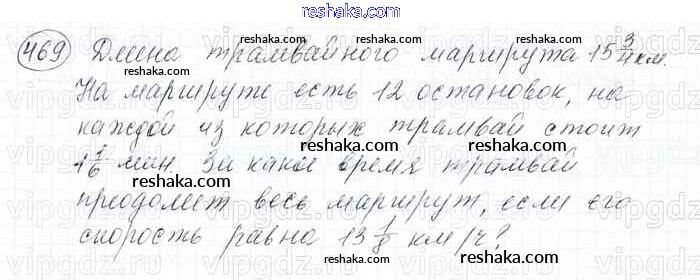 reshaka.com
469 Длина трамвайного маршрута 15 3/4 км.
reshaka.com reshaka.com
На маршруте есть 12 остановок, на
reshaka.com reshaka.com
каждой из которых трамвай стоит
1 1/6 мин. За какое время трамвай
reshaka.com reshaka.com
преодолеет весь маршрут, если его
скорость равна 13 1/8 км/ч?
reshaka.com reshaka.com